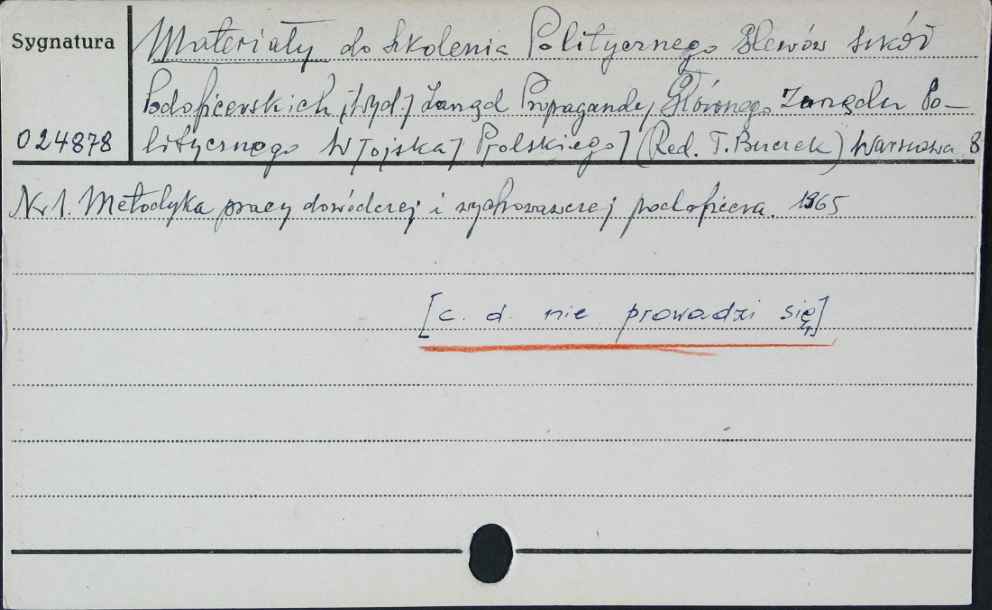 Sygnatura
Materiały do Szkolenia Politycznego Elewów szkół
Podoficerskich, [Wyd.] Zarząd Propagandy Głównego Zarządu Po-
024878 litycznego W[ojska] P[olskiego] (Red. T. Burzek) Warszawa 8
Nr 1. Metodyka pracy dowódczej i wychowawczej podoficera. 1965
[c. d. nie prowadzi się]